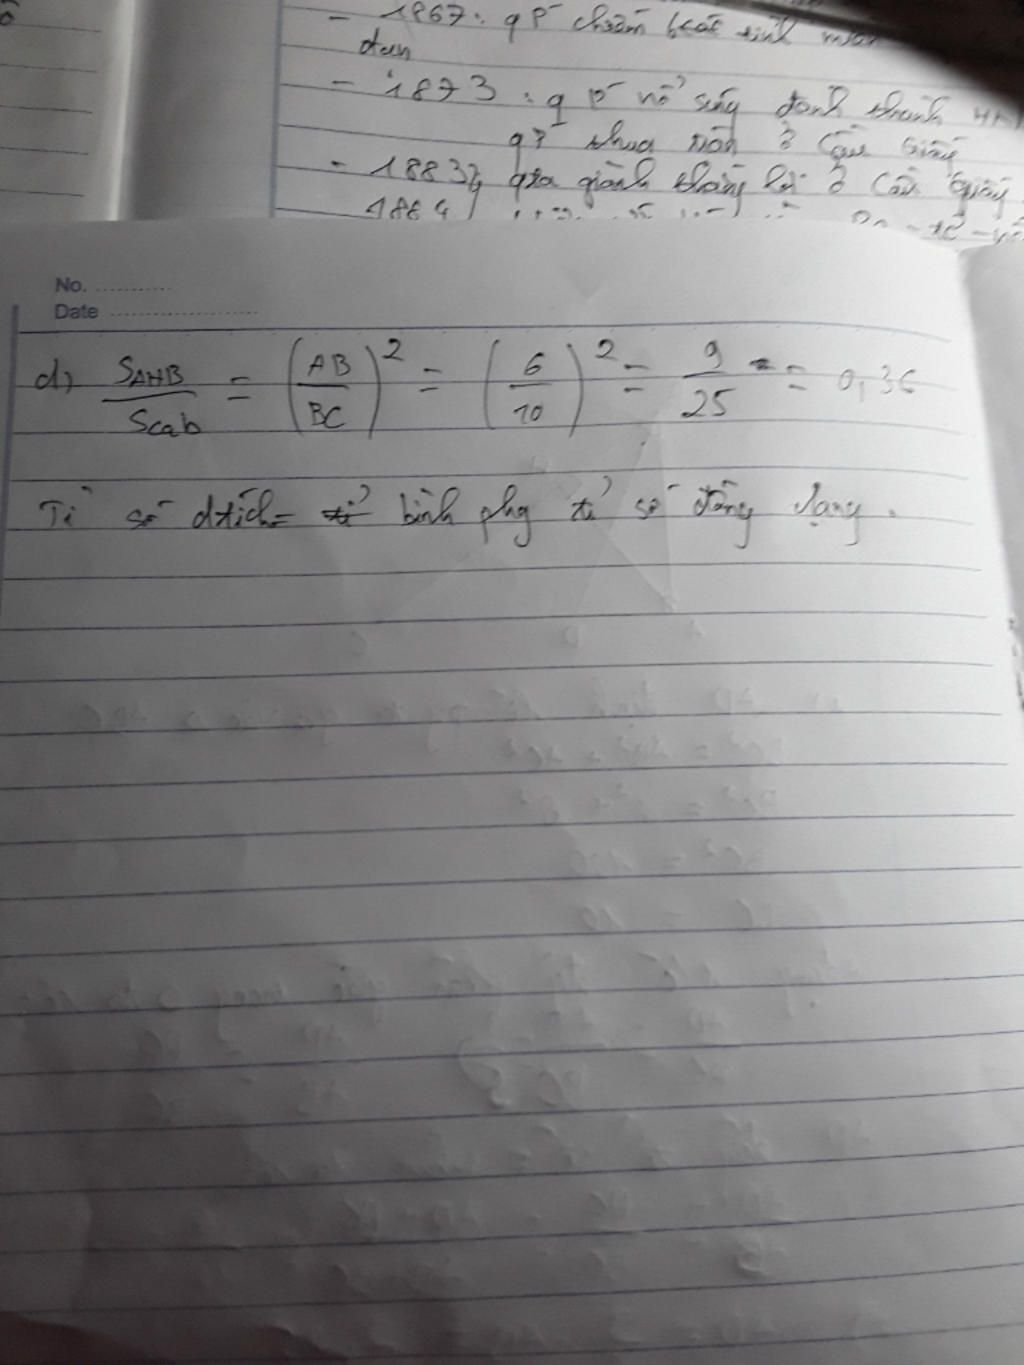 - 1867: qP chiếm
dân
- 1873: qP nổ súng đánh thành
qP thua trận ở Cầu Giấy
- 1883, qta giành thắng lợi ở Cầu Giấy
1884
No. ..........
Date ....................
d) SAHB/Scab = (AB/BC)² = (6/10)² = 9/25 = 0,36
Tỉ số dtích = bình phg tỉ số đồng dạng.